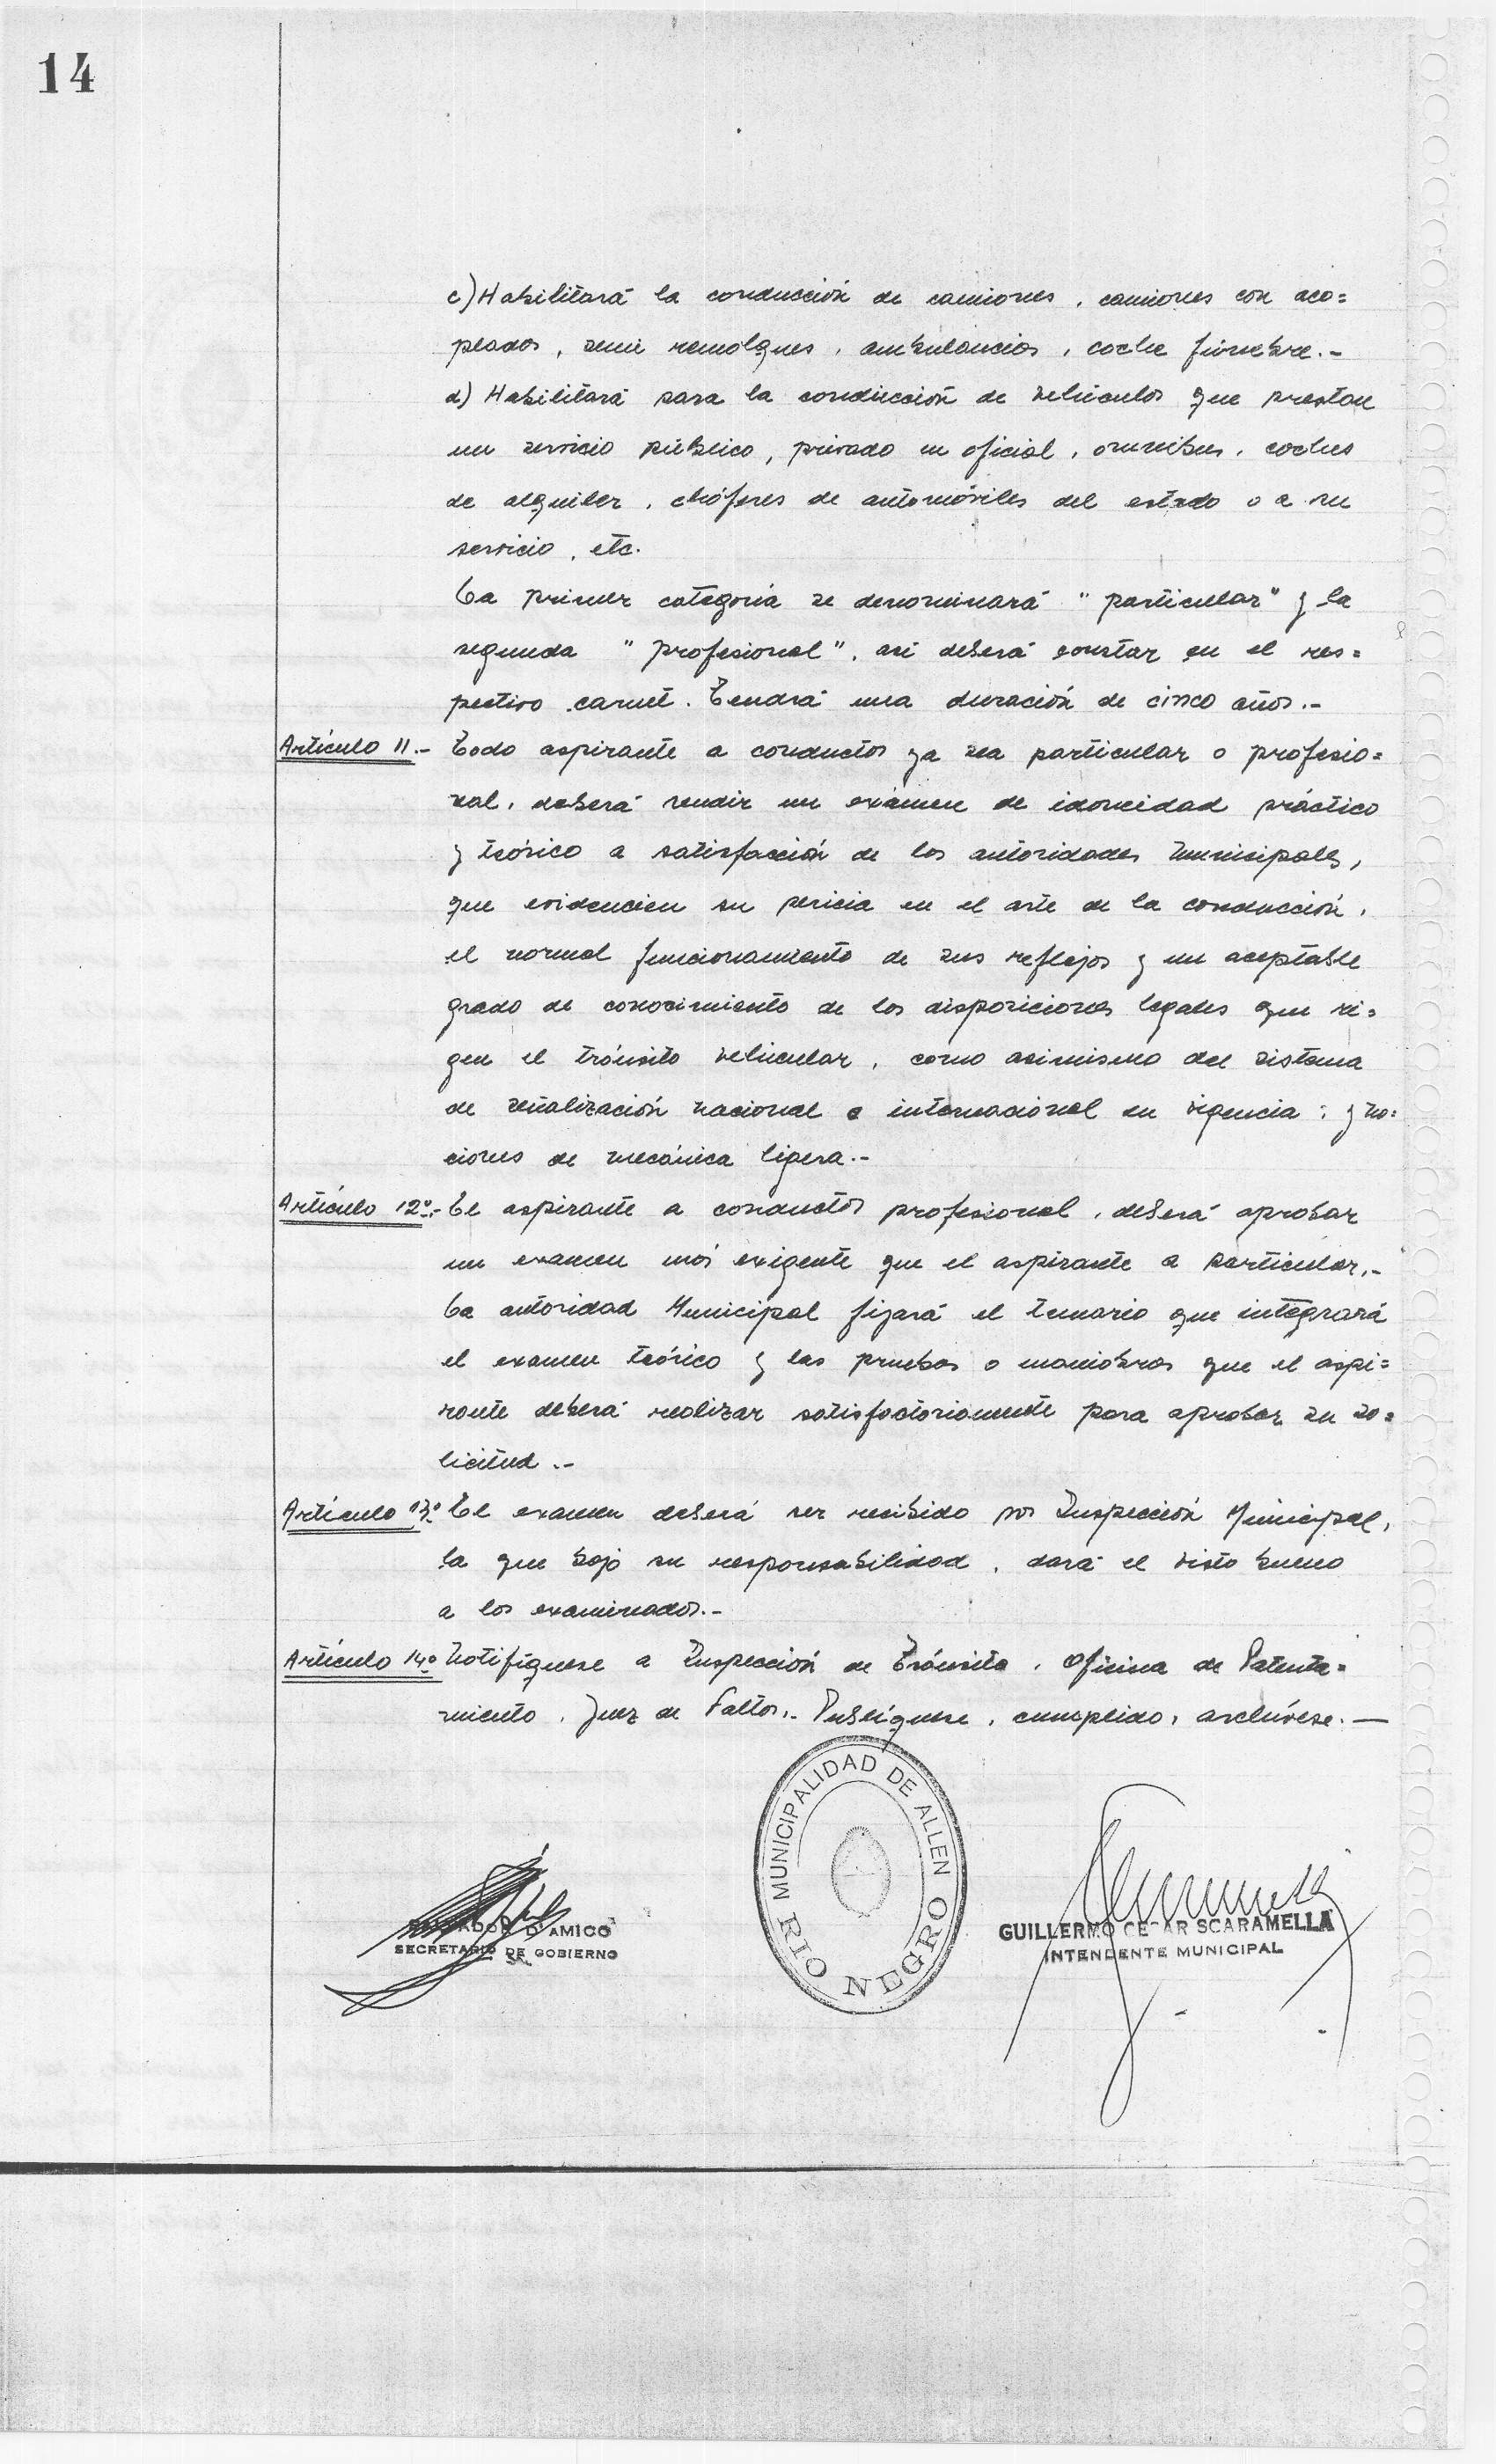 14
c) Habilitará la conducción de camiones, camiones con aco=
plados, semi remolques, ambulancias, coche fúnebre.-
d) Habilitará para la conducción de vehículos que prestan
un servicio público, privado u oficial, omnibus, coches
de alquiler, chóferes de automóviles del estado o a su
servicio, etc.
La primer categoría se denominará "particular" y la
segunda "profesional", así deberá constar en el res=
pectivo carnet. Tendrá una duración de cinco años.-
Artículo 11.- Todo aspirante a conductor ya sea particular o profesio=
nal, deberá rendir un exámen de idoneidad práctico
y teórico a satisfacción de las autoridades municipales,
que evidencien su pericia en el arte de la conducción,
el normal funcionamiento de sus reflejos y un aceptable
grado de conocimiento de las disposiciones legales que ri=
gen el tránsito vehicular, como asimismo del sistema
de señalización nacional e internacional en vigencia; y no=
ciones de mecánica ligera.-
Artículo 12º.- El aspirante a conductor profesional, deberá aprobar
un examen más exigente que el aspirante a particular.-
La autoridad Municipal fijará el temario que integrará
el examen teórico y las pruebas o maniobras que el aspi=
rante deberá realizar satisfactoriamente para aprobar su so=
licitud.-
Artículo 13º El examen deberá ser recibido por Inspección Municipal,
la que bajo su responsabilidad, dará el visto bueno
a los examinados.-
Artículo 14º Notifíquese a Inspección de Tránsito, Oficina de Patenta=
miento, Juez de Faltas.- Publíquese, cumplido, archívese.—
MUNICIPALIDAD DE ALLEN
RIO NEGRO
D'AMICO
SECRETARIO DE GOBIERNO
GUILLERMO CESAR SCARAMELLA
INTENDENTE MUNICIPAL